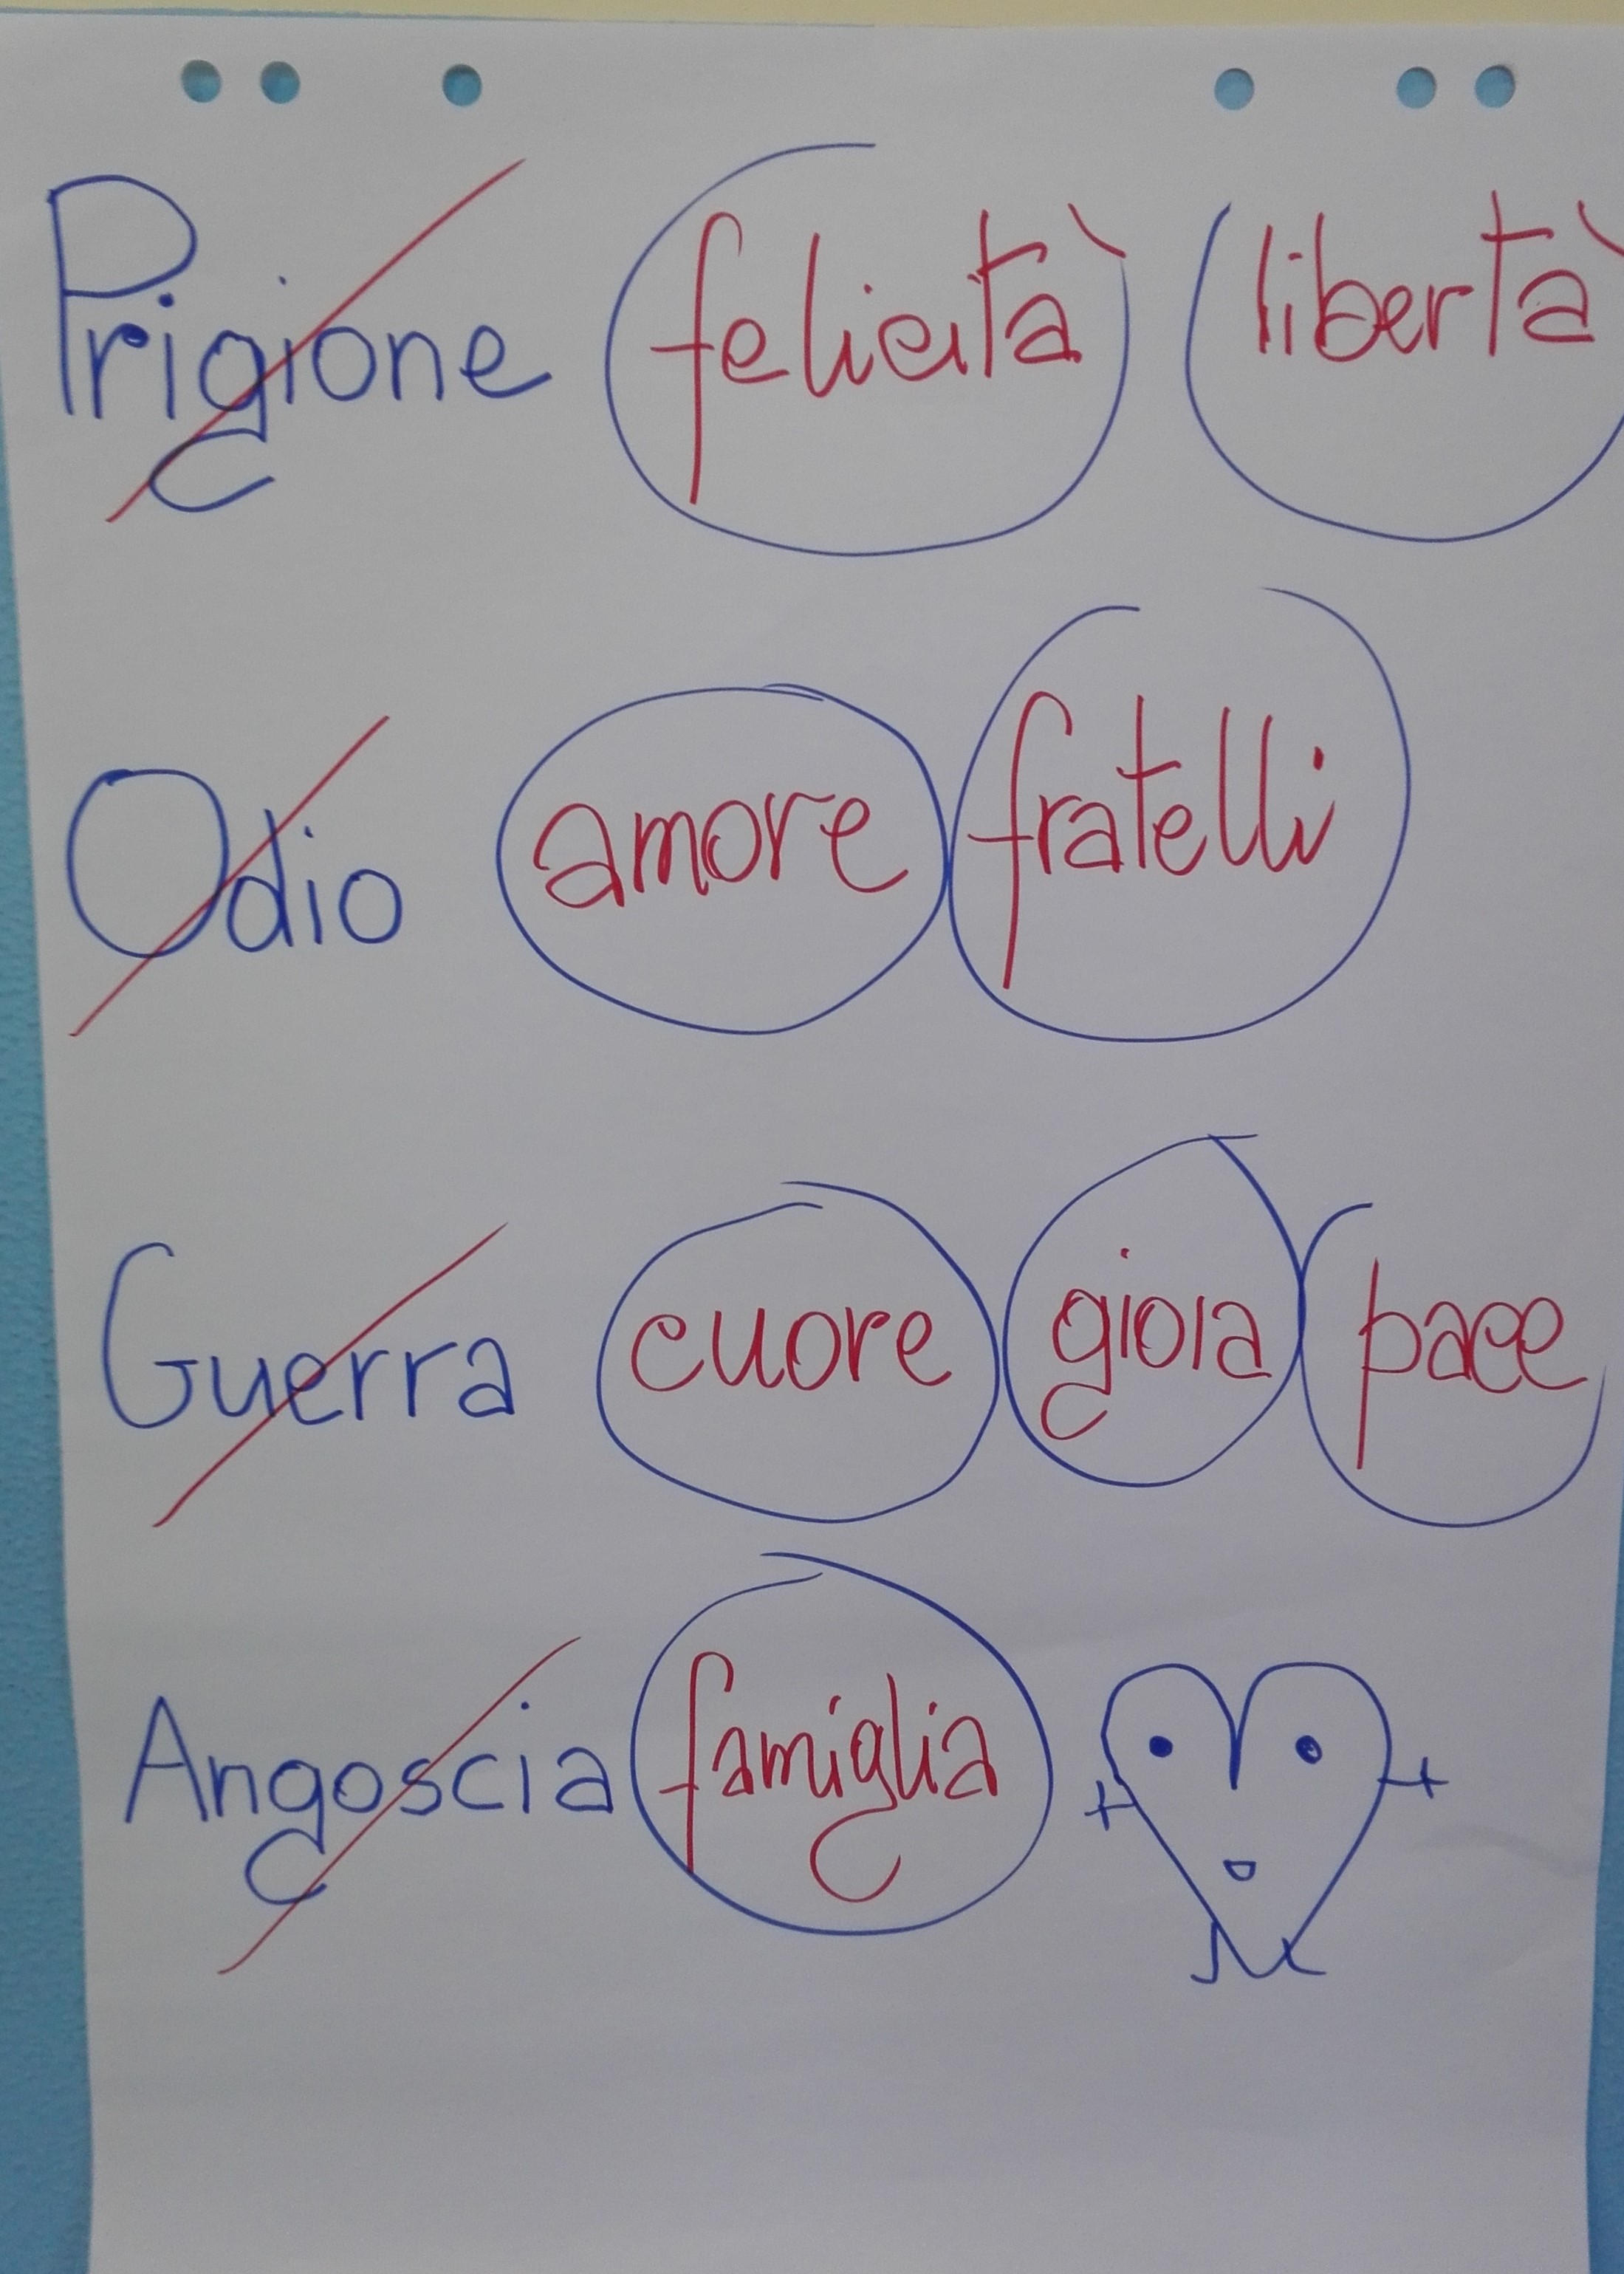 Prigione felicità libertà
Odio amore fratelli
Guerra cuore gioia pace
Angoscia famiglia